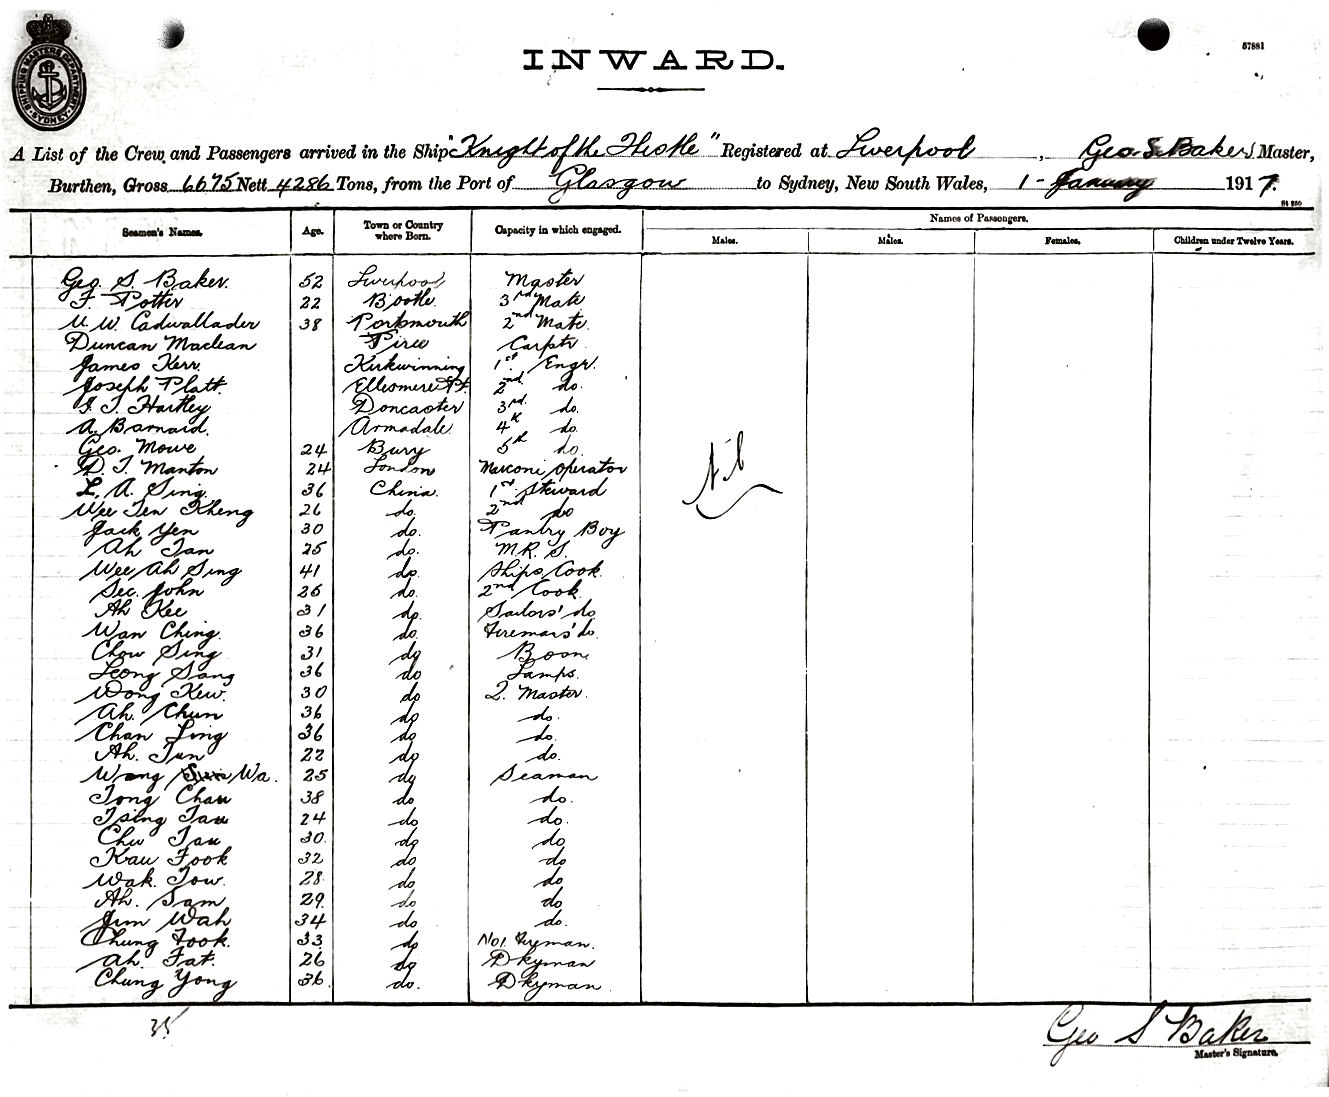 SHIPPING MASTERS DEPARTMENT SYDNEY
57881
INWARD.
A List of the Crew and Passengers arrived in the Ship "Knight of the Thistle" Registered at Liverpool, Geo. S. Baker Master,
Burthen, Gross 6675 Nett 4286 Tons, from the Port of Glasgow to Sydney, New South Wales, 1 - January 1917.
Names of Passengers.
Seamen's Names. Age. Town or Country where Born. Capacity in which engaged. Males. Males. Females. Children under Twelve Years.
Geo. S. Baker. 52 Liverpool Master
F. Potter 22 Bootle. 3rd Mate
W. Cadwallader 38 Portsmouth 2nd Mate.
Duncan Maclean Tiree Carptr.
James Kerr. Kirkwinning 1st. Engr.
Joseph Platt. Ellesmere Pt. 2nd do.
Hartley Doncaster 3rd. do.
A. Barnard. Armadale. 4th do.
Geo. Mowe 24 Bury 5th do.
D. T. Manton 24 London Marconi Operator
L. A. Sing. 36 China. 1st Steward
Wee Ten Kheng 26 do. 2nd do
Jack Yen 30 do. Pantry Boy
Ah Tan 25 do. M.R.S.
Wee Ah Sing 41 do. Ships Cook.
Sec. John 26 do. 2nd Cook.
Ah Kee 31 do. Sailors' do
Wan Ching. 36 do. Firemans' do.
Chow Sing 31 do Bosn.
Leong Sang 36 do Lamps.
Wong Kew. 30 do Q. Master.
Ah. Chun 36 do do.
Chan Ling 36 do do.
Ah. Tun 22 do do.
Wong Wa. 25 do Seaman
Tong Chau 38 do do.
Tsing Tau 24 do do.
Chu Tau 30. do do
Kau Fook 32 do do
Wak. Tow. 28 do do
Ah. Sam 29. do do
Jim Wah 34 do do.
Chung Fook. 33 do No1. Fireman.
Ah. Fat. 26 do Dkyman
Chung Yong 36. do. Dkyman.
Nil
35
Geo S Baker
Master's Signature.